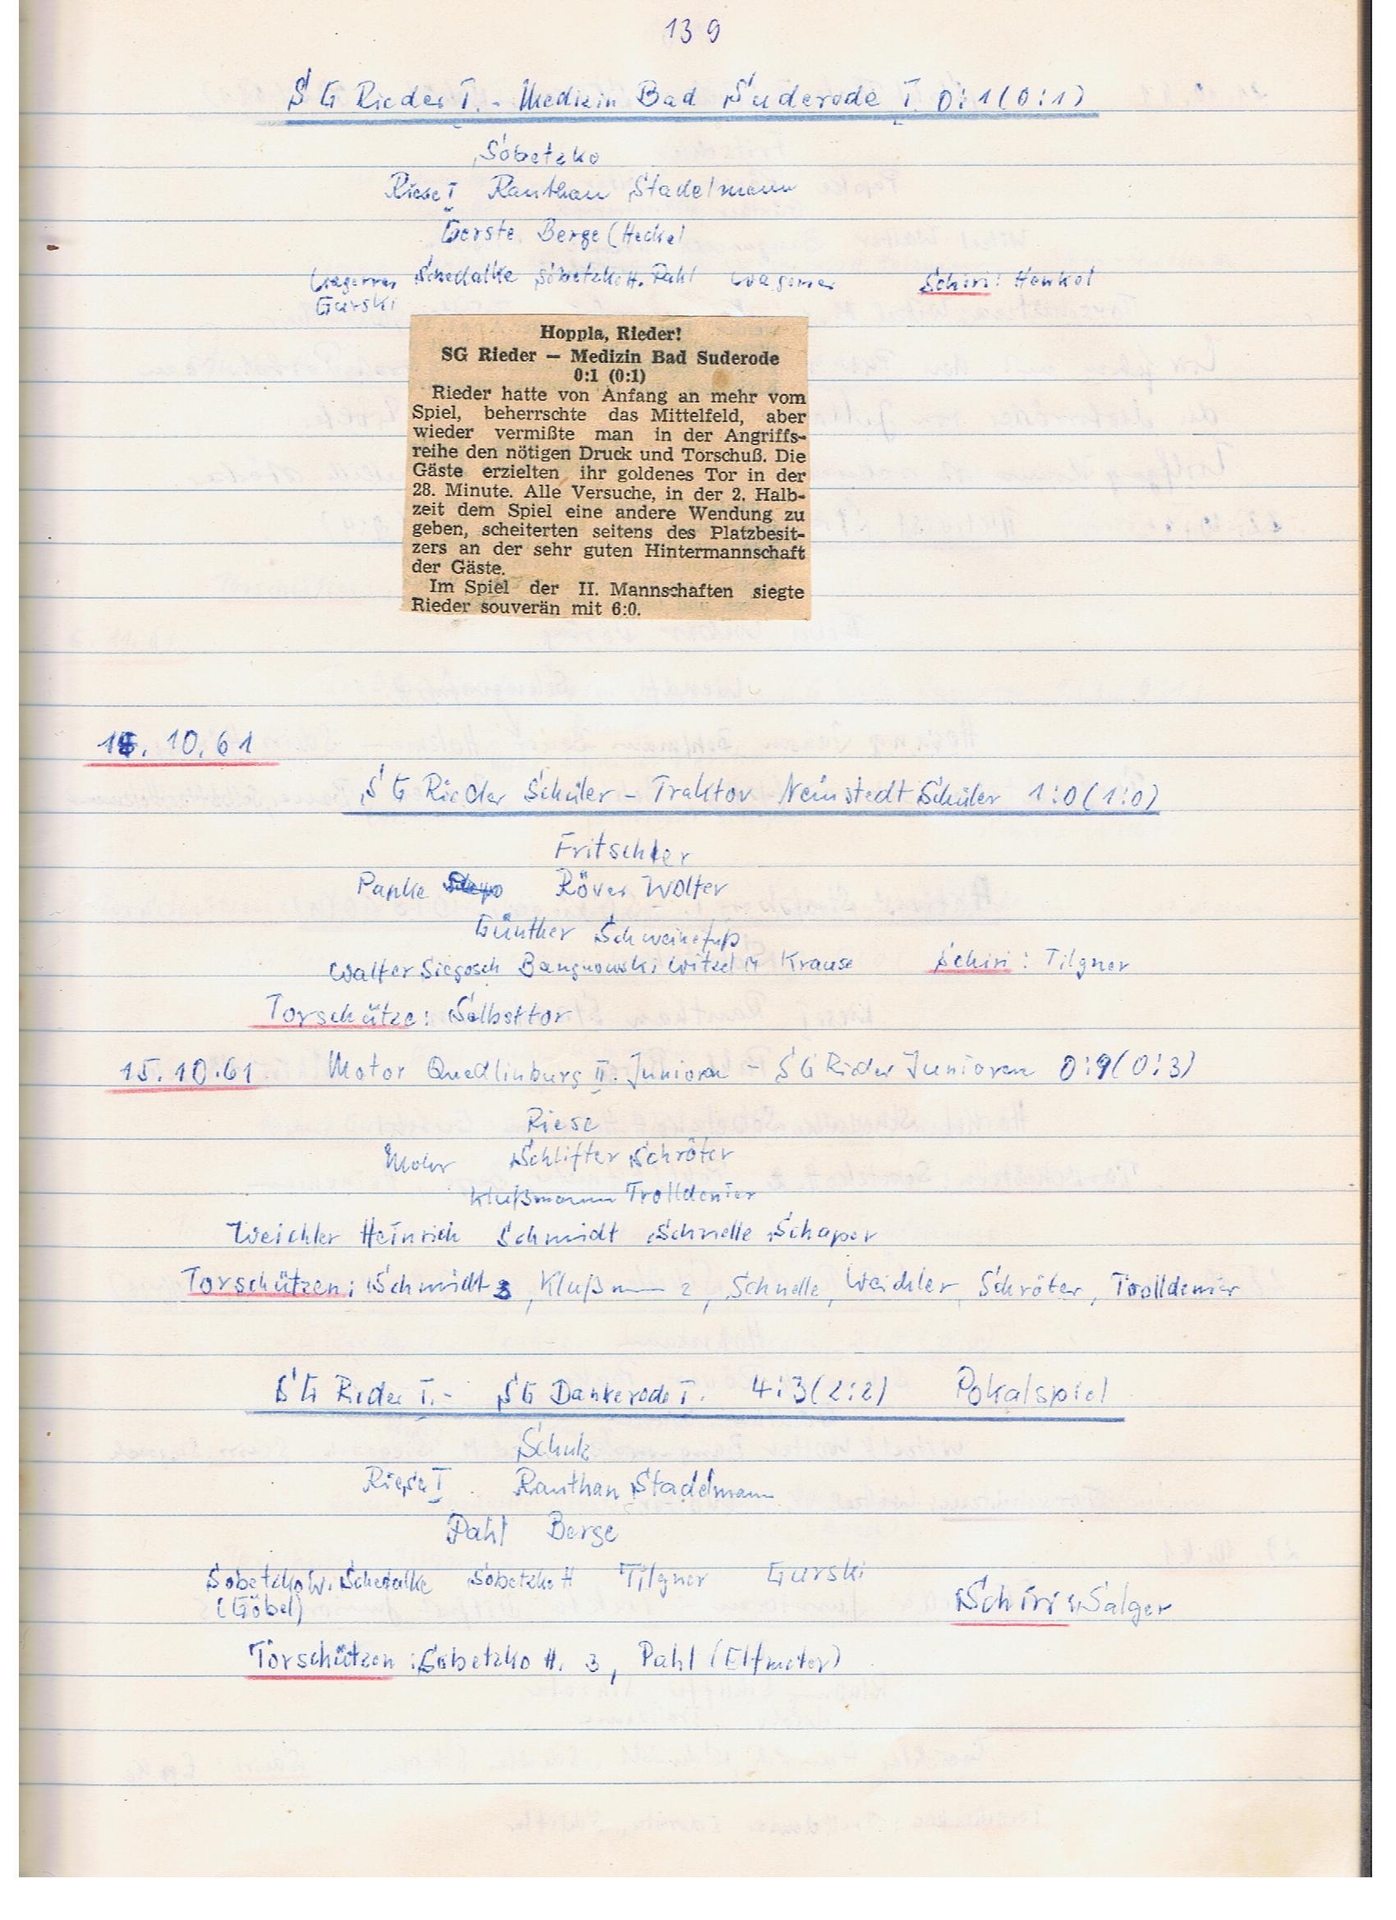 139
SG Rieder I. - Medizin Bad Suderode I. 0:1 (0:1)
Sobetzko
Riese I Ranthan Stadelmann
Gerste Berge (Heckel
Wagener Schedalke Sobetzko H. Pahl Wagener Schiri: Henkel
Gurski
Hoppla, Rieder!
SG Rieder — Medizin Bad Suderode
0:1 (0:1)
Rieder hatte von Anfang an mehr vom
Spiel, beherrschte das Mittelfeld, aber
wieder vermißte man in der Angriffs-
reihe den nötigen Druck und Torschuß. Die
Gäste erzielten ihr goldenes Tor in der
28. Minute. Alle Versuche, in der 2. Halb-
zeit dem Spiel eine andere Wendung zu
geben, scheiterten seitens des Platzbesit-
zers an der sehr guten Hintermannschaft
der Gäste.
Im Spiel der II. Mannschaften siegte
Rieder souverän mit 6:0.
10.61
SG Rieder Schüler - Traktor Neinstedt Schüler 1:0 (1:0)
Fritschler
Papke Röver Wolter
Günther Schweinefuß
Walter Siegosch Bangnowski Witzel M Krause Schiri: Tilgner
Torschütze: Selbsttor
15.10.61 Motor Quedlinburg II. Junioren - SG Rieder Junioren 0:9 (0:3)
Riese
Mohr Schlifter Schröter
Klußmann Trolldenier
Weichler Heinrich Schmidt Schnelle Schaper
Torschützen: Schmidt 3, Klußm 2, Schnelle, Weichler, Schröter, Trolldenier
SG Rieder I. - SG Dankerode I. 4:3 (2:2) Pokalspiel
Schulz
Riese I Ranthan Stadelmann
Pahl Berge
Sobetzko W. Schedalke Sobetzko H Tilgner Gurski
(Göbel) Schiri: Salger
Torschützen: Sobetzko H. 3, Pahl (Elfmeter)